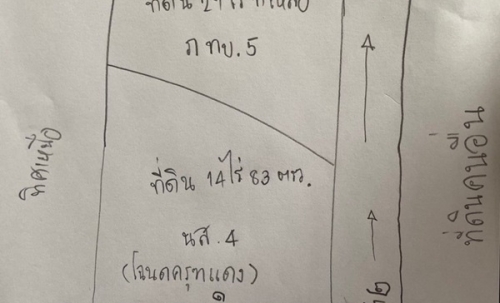 ที่ดิน
ภ ทบ. 5
ทิศเหนือ
ที่ดินคนอื่น
ที่ดิน 14 ไร่ 83 ตรว.
นส. 4
(โฉนดครุฑแดง)
๑